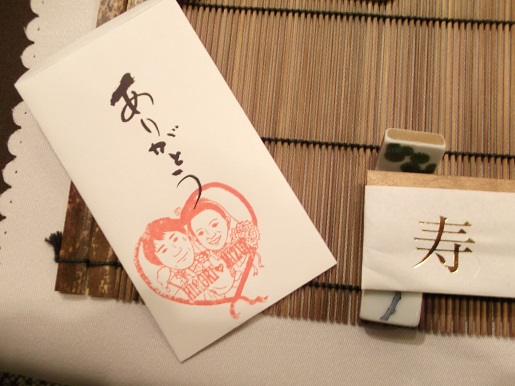 ありがとう
寿